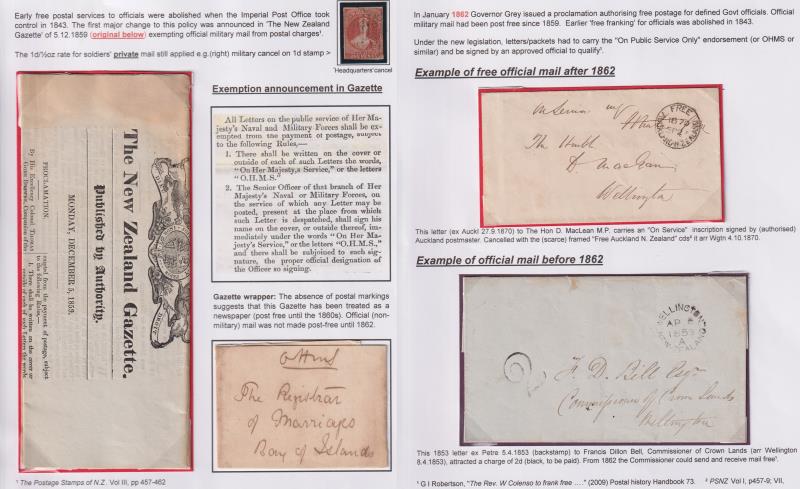 Early free postal services to officials were abolished when the Imperial Post Office took
control in 1843. The first major change to this policy was announced in 'The New Zealand
Gazette' of 5.12.1859 (original below) exempting official military mail from postal charges¹.
The 1d/½oz rate for soldiers' private mail still applied e.g.(right) military cancel on 1d stamp >
'Headquarters'cancel
Exemption announcement in Gazette
All Letters on the public service of Her Ma-
jesty's Naval and Military Forces shall be ex-
empted from the payment of postage, subject
to the following Rules,—
1. There shall be written on the cover or
outside of each of such Letters the words,
"On Her Majesty's Service," or the letters
"O.H.M.S."
2. The Senior Officer of that branch of Her
Majesty's Naval or Military Forces, on
the service of which any Letter may be
posted, present at the place from which
such Letter is despatched, shall sign his
name on the cover, or outside thereof, im-
mediately under the words "On Her Ma-
jesty's Service," or the letters "O.H.M.S.,"
and there shall be subjoined to such sig-
nature, the proper official designation of
the Officer so signing.
Gazette wrapper: The absence of postal markings
suggests that this Gazette has been treated as a
newspaper (post free until the 1860s). Official (non-
military) mail was not made post-free until 1862.
The New Zealand Gazette.
Published by Authority.
MONDAY, DECEMBER 5, 1859.
PROCLAMATION.
By His Excellency Colonel THOMAS
empted from the payment of postage, subject
to the following Rules,—
1. There shall be written on the cover or
outside of each of such Letters the words
OHMS
The Registrar
of Marriages
Bay of Islands
¹ The Postage Stamps of N.Z. Vol III, pp 457-462
In January 1862 Governor Grey issued a proclamation authorising free postage for defined Govt officials. Official
military mail had been post free since 1859. Earlier 'free franking' for officials was abolished in 1843.
Under the new legislation, letters/packets had to carry the "On Public Service Only" endorsement (or OHMS or
similar) and be signed by an approved official to qualify¹.
Example of free official mail after 1862
On Service
The Honble
D. MacLean
Wellington
FREE
This letter (ex Auckl 27.9.1870) to The Hon D. MacLean M.P. carries an "On Service" inscription signed by (authorised)
Auckland postmaster. Cancelled with the (scarce) framed "Free Auckland N. Zealand" cds² it arr Wgtn 4.10.1870.
Example of official mail before 1862
WELLINGTON
AP 8
1853
A
2
F. D. Bell Esqr
Commissioner of Crown Lands
Wellington
This 1853 letter ex Petre 5.4.1853 (backstamp) to Francis Dillon Bell, Commissioner of Crown Lands (arr Wellington
8.4.1853), attracted a charge of 2d (black, to be paid). From 1862 the Commissioner could send and receive mail free¹.
¹ G I Robertson, "The Rev. W Colenso to frank free ...." (2009) Postal history Handbook 73. ² PSNZ Vol I, p457-9; VII,